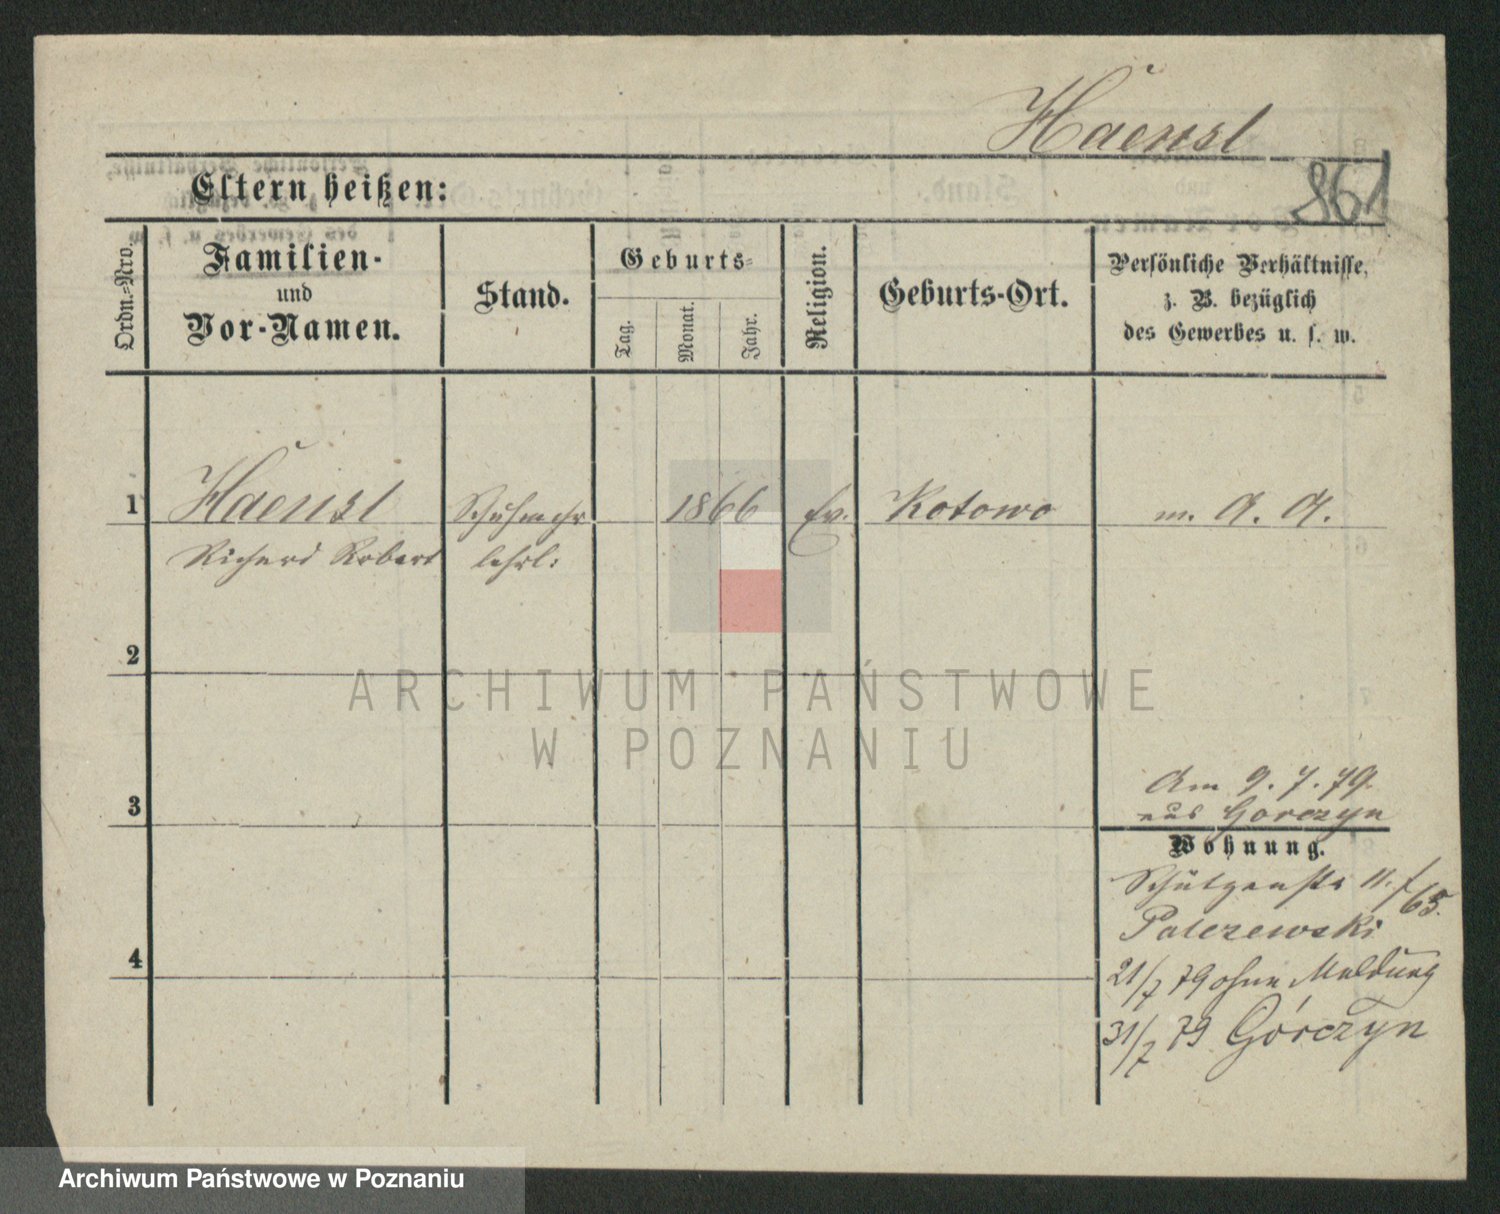 Haensl
861
Eltern heißen:
Ordn.-Nro.
Familien-
und
Vor-Namen.
Stand.
Geburts-
Tag.
Monat.
Jahr.
Religion.
Geburts-Ort.
Persönliche Verhältnisse,
z. B. bezüglich
des Gewerbes u. s. w.
1
Haensl
Schuhmchr
1866
Ev.
Kotowo
m. A. A.
Richard Robert
lehrl:
2
ARCHIWUM PAŃSTWOWE
W POZNANIU
3
Am 9. 7. 79.
aus Gorczyn
Wohnung.
Schützenstr 11. f/65.
Palczewski
4
21/7 79 ohne Meldung
31/7 79 Górczyn
Archiwum Państwowe w Poznaniu